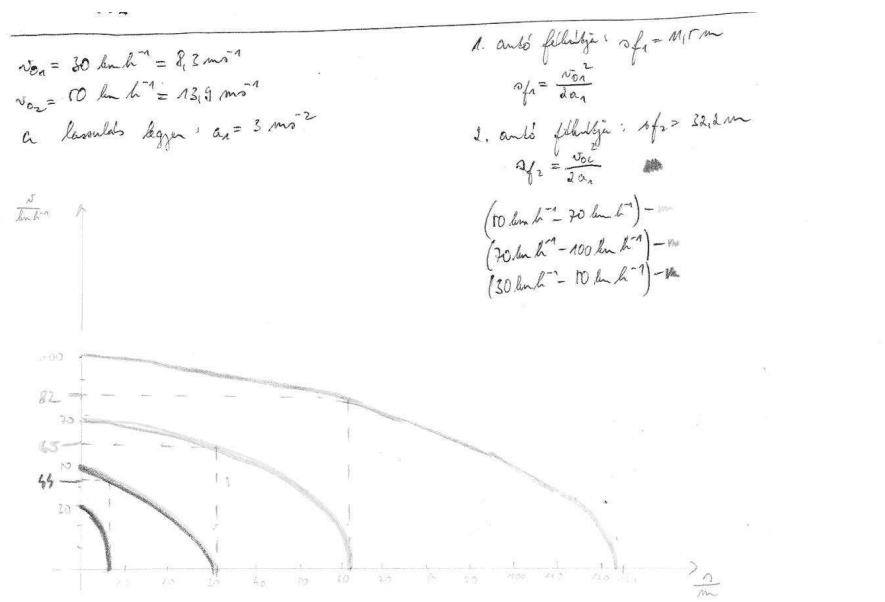 v₀₁ = 30 km h⁻¹ = 8,3 ms⁻¹
v₀₂ = 50 km h⁻¹ = 13,9 ms⁻¹
a lassulás legyen: a₁ = 3 ms⁻²
1. autó fékútja: sf₁ = 11,5 m
sf₁ = v₀₁² / 2a₁
2. autó fékútja: sf₂ = 32,2 m
sf₂ = v₀₂² / 2a₁
(50 km h⁻¹ – 70 km h⁻¹) –
(70 km h⁻¹ – 100 km h⁻¹) –
(30 km h⁻¹ – 50 km h⁻¹) –
v / km h⁻¹
100
82
70
65
50
44
30
40
60
100
110
120
s / m